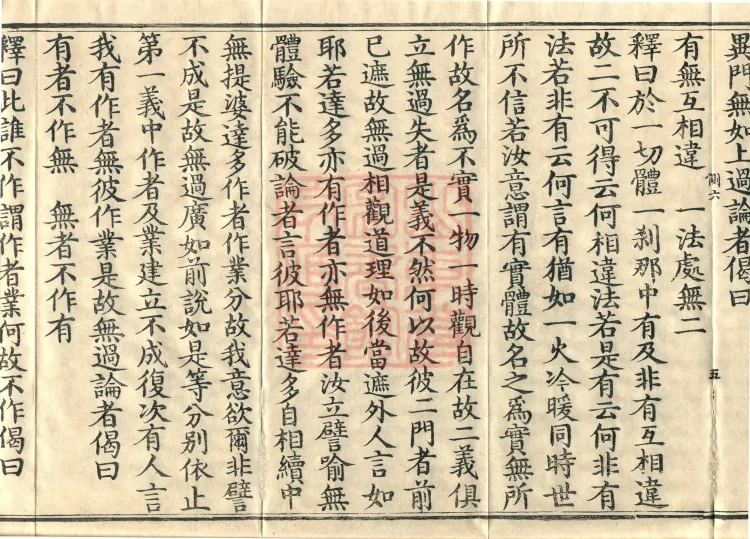 異門無如上過論者偈曰
有無互相違　一法處無二
釋曰於一切體一刹那中有及非有互相違
故二不可得云何相違法若是有云何非有
法若非有云何言有猶如一火冷暖同時世
所不信若汝意謂有實體故名之爲實無所
作故名爲不實一物一時觀自在故二義俱
立無過失者是義不然何以故彼二門者前
已遮故無過相觀道理如後當遮外人言如
耶若達多亦有作者亦無作者汝立譬喻無
體驗不能破論者言彼耶若達多自相續中
無提婆達多作者作業分故我意欲爾非譬
不成是故無過廣如前說如是等分別依止
第一義中作者及業建立不成復次有人言
我有作者無彼作業是故無過論者偈曰
有者不作無　無者不作有
釋曰此誰不作謂作者業何故不作偈曰
六
五